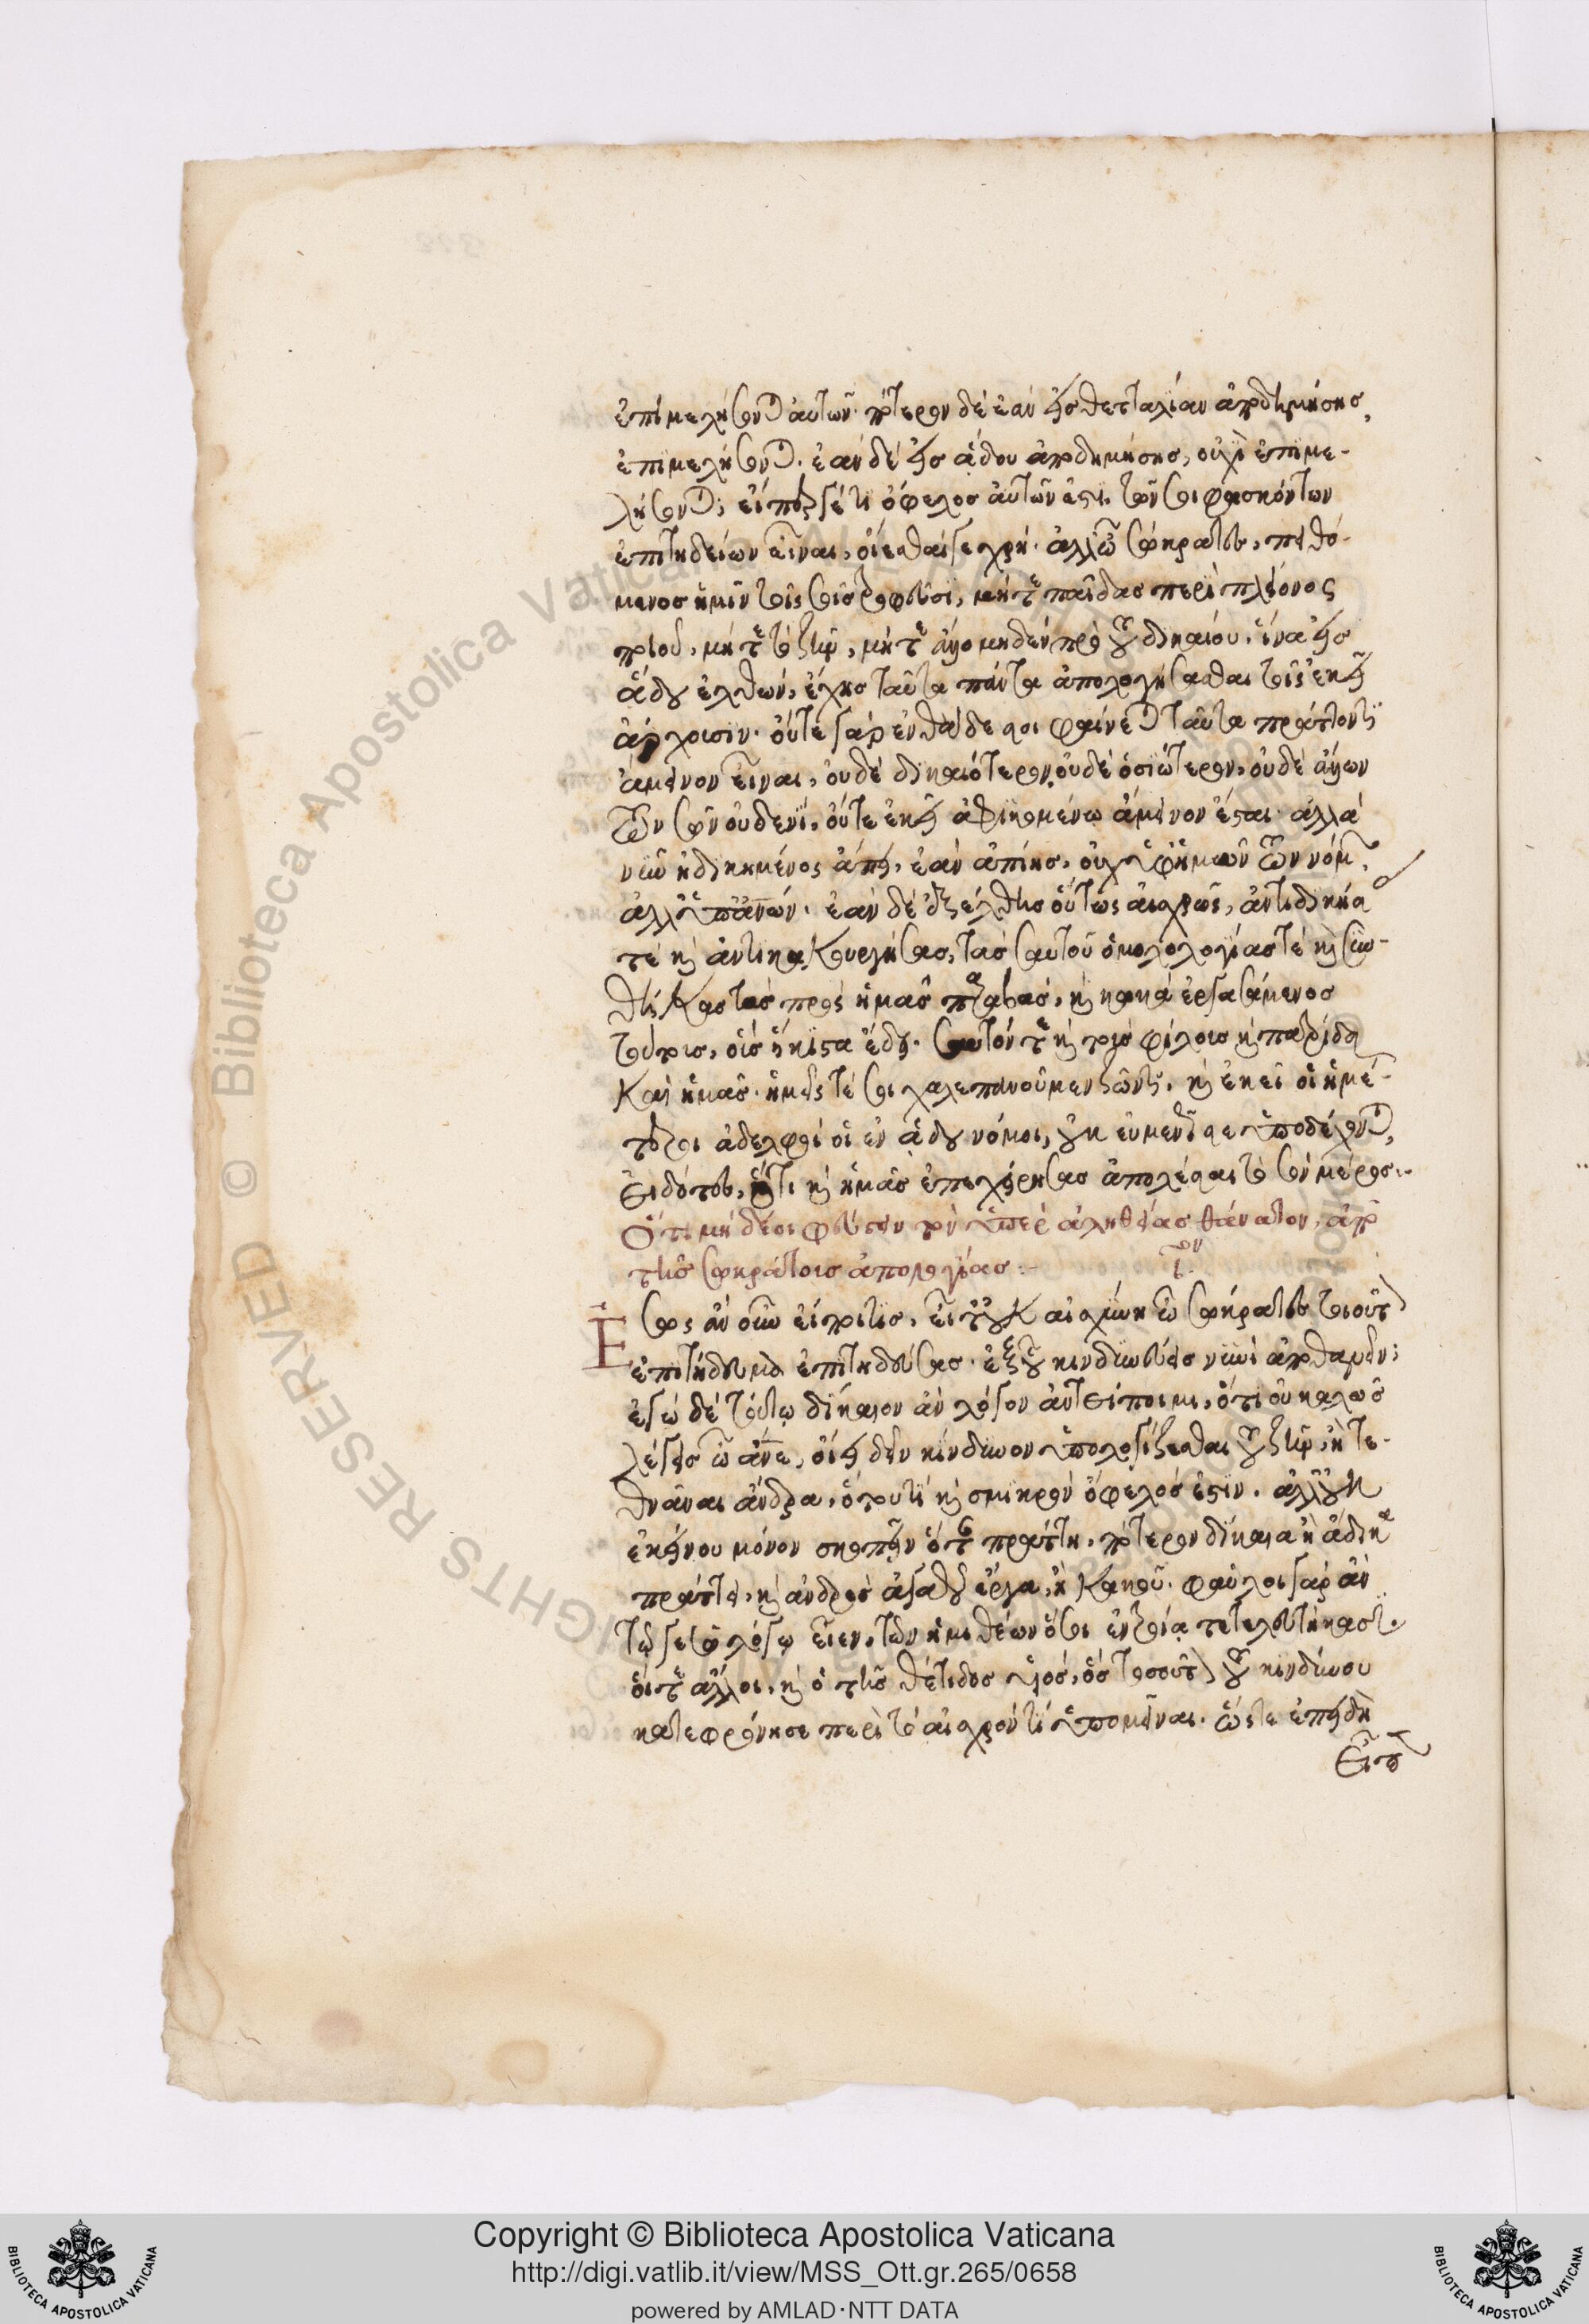 ἐπιμελήσονται αὐτῶν· πότερον δὲ ἐὰν εἰς θετταλίαν ἀποδημήσης,
ἐπιμελήσονται. ἐὰν δὲ εἰς ᾅδου ἀποδημήσης, οὐχὶ ἐπιμε-
λήσονται; εἴπερ γέ τι ὄφελος αὐτῶν ἐστι. τῶν σοι φασκόντων
ἐπιτηδείων εἶναι, οἴεσθαί γε χρή. ἀλλ' ὦ σώκρατες, πειθό-
μενος ἡμῖν τοῖς σοῖς τροφεῦσι, μήτε παῖδας περὶ πλείονος
ποιοῦ, μήτε τὸ ζῆν, μήτε ἄλλο μηδὲν πρὸ τοῦ δικαίου. ἵνα εἰς
ἅδου ἐλθών, ἔχης ταῦτα πάντα ἀπολογήσασθαι τοῖς ἐκεῖ
ἄρχουσιν. οὔτε γὰρ ἐνθάδε σοι φαίνεται ταῦτα πράττοντι
ἄμεινον εἶναι, οὐδὲ δικαιότερον, οὐδὲ ὁσιώτερον, οὐδὲ ἄλλων
τῶν σῶν οὐδενί, οὔτε ἐκεῖ ἀφικομένω ἄμεινον ἔσται. ἀλλὰ
νῦν ἠδικημένος ἄπει, ἐὰν ἀπίης, οὐχ ὑφ' ἡμῶν τῶν νόμων,
ἀλλ' ὑπὸ ἀνῶν. ἐὰν δὲ ἐξέλθης οὕτως αἰσχρῶς, ἀντιδικήσας
τε καὶ ἀντικακουργήσας, τὰς σαυτοῦ ὁμολολογίας τε καὶ συν-
θήκας τὰς πρὸς ἡμᾶς παραβάς, καὶ κακὰ ἐργασάμενος
τούτοις, οἷς ἥκιστα ἔδει. σαυτόν τε καὶ τοὺς φίλοις καὶ πατρίδα
καὶ ἡμᾶς. ἡμεῖς τέ σοι χαλεπανοῦμεν ζῶντι. καὶ ἐκεῖ οἱ ἡμέ-
τεροι ἀδελφοὶ οἱ ἐν ᾅδου νόμοι, οὐκ εὐμενῶς σε ὑποδέξονται,
εἰδότες, ὅτι καὶ ἡμᾶς ἐπεχείρησας ἀπολέσαι τὸ σὸν μέρος:-
Ὅτι μὴ δέοι φεύγειν τὸν ὑπὲρ ἀληθείας θάνατον, ἀπὸ
τῆς σωκράτους ἀπολογίας:-
Ἴσως ἂν οὖν εἴποι τις, εἶτ' οὐκ αἰσχύνη ὦ σώκρατες τοιοῦτον
ἐπιτήδευμα ἐπιτηδεύσας. ἐξ οὗ κινδυνεύεις νυνὶ ἀποθανεῖν;
ἐγὼ δὲ τούτω δίκαιον ἂν λόγον ἀντείποιμι, ὅτι οὐ καλῶς
λέγεις ὦ ἄνε, οἴει δεῖν κίνδυνον ὑπολογίζεσθαι τοῦ ζῆν, ἢ τε-
θνάναι ἄνδρα, ὅτου τι καὶ σμικρὸν ὄφελός ἐστιν. ἀλλ' οὐκ
ἐκεῖνου μόνον σκοπεῖν ὅταν πράττη, πότερον δίκαια ἢ ἄδικα
πράττει, καὶ ἀνδρὸς ἀγαθοῦ ἔργα, ἢ κακοῦ. φαῦλοι γὰρ ἂν
τῷ γε σῷ λόγῳ εἶεν, τῶν ἡμιθέων ὅσοι ἐν τροίᾳ τετελευτήκασιν.
οἵ τε ἄλλοι, καὶ ὁ τῆς θέτιδος υἱός, ὃς τοσοῦτον τοῦ κινδύνου
κατεφρόνησε περὶ τὸ αἰσχρόν τι ὑπομεῖναι. ὥστε ἐπειδὴ